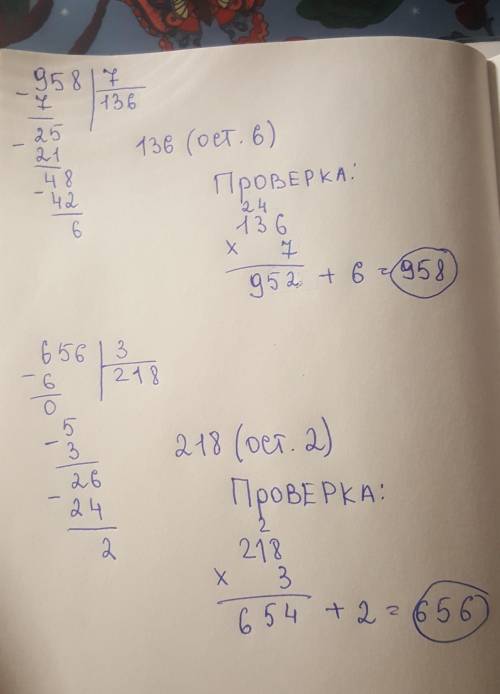 - 958 | 7
7 | 136
- 25
21
- 48
42
6
136 (ост. 6)
Проверка:
24
136
x 7
952 + 6 = 958
- 656 | 3
6 | 218
0
- 5
3
- 26
24
2
218 (ост. 2)
Проверка:
2
218
x 3
654 + 2 = 656